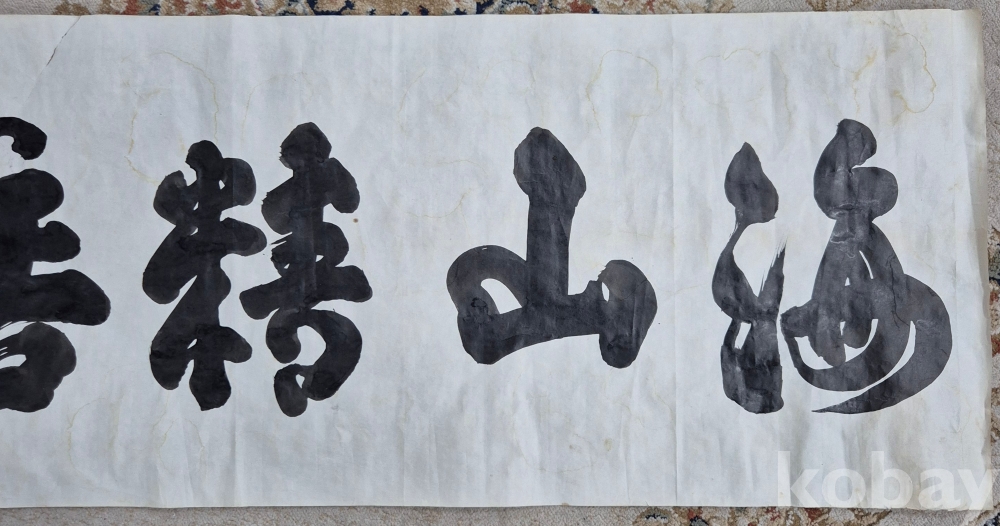 海山精
kobay